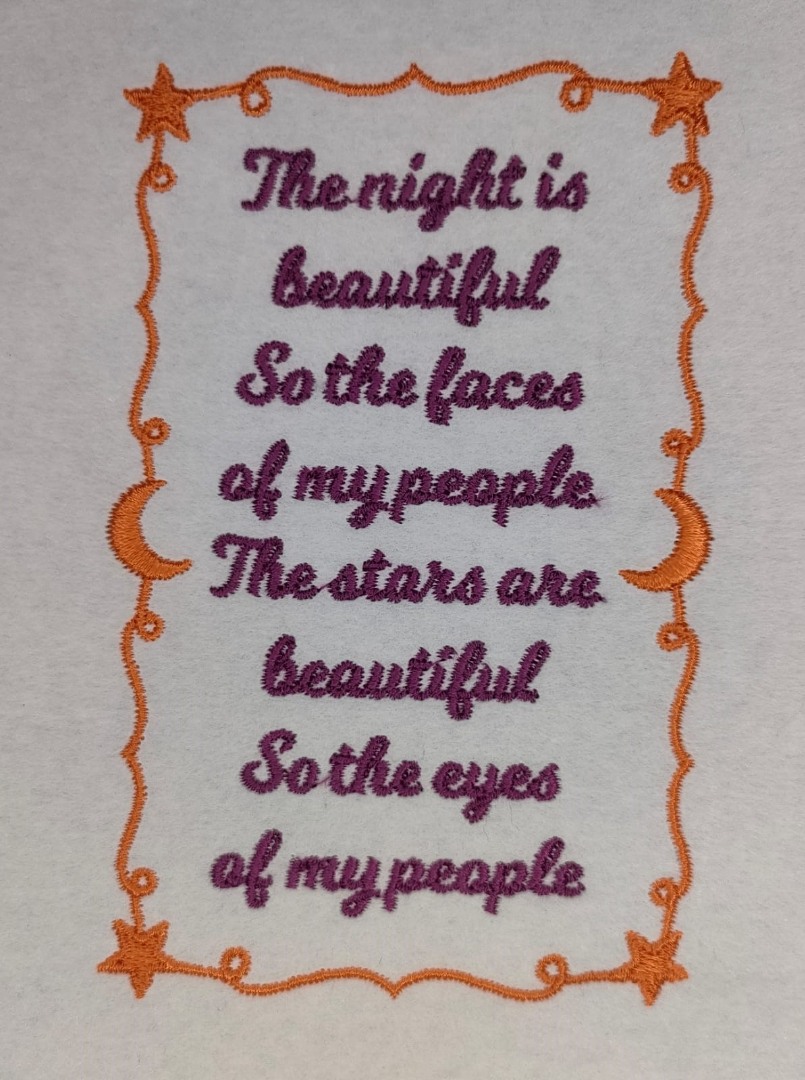 The night is
beautiful
So the faces
of my people
The stars are
beautiful
So the eyes
of my people